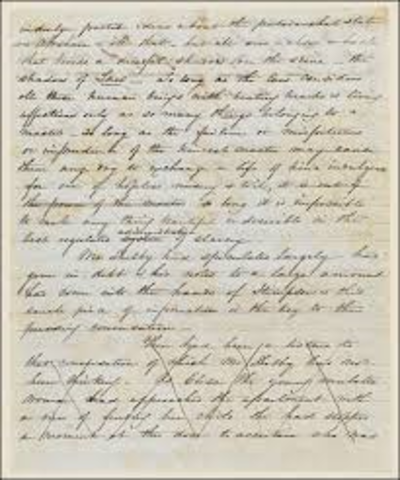 indulge poetical ideas about the patriarchal state
& all that— but over & above
that broods a dreadful shadow on the scene— the
shadow of Law— So long as the law considers
all these human beings with beating hearts & living
affections only as so many things belonging to a
master— So long as the failure or misfortune
or imprudence of the kindest master may cause
them any day to exchange a life of kind indulgence
for one of hopeless misery & toil,
the power of the So long it is impossible
to make any thing beautiful or desirable in the
administration
best regulated system of slavery
Mr Shelby had speculated largely— had
gone in debt & his notes to a large amount
had come into the hands of & this
small piece of information is the key to the
preceding conversation—
There had been a listener to
this conversation of which Mr Shelby had not
been thinking— As the young mulatto
woman had approached the apartment with
a view of finding her child she had stopped
a moment at the door to ascertain who was